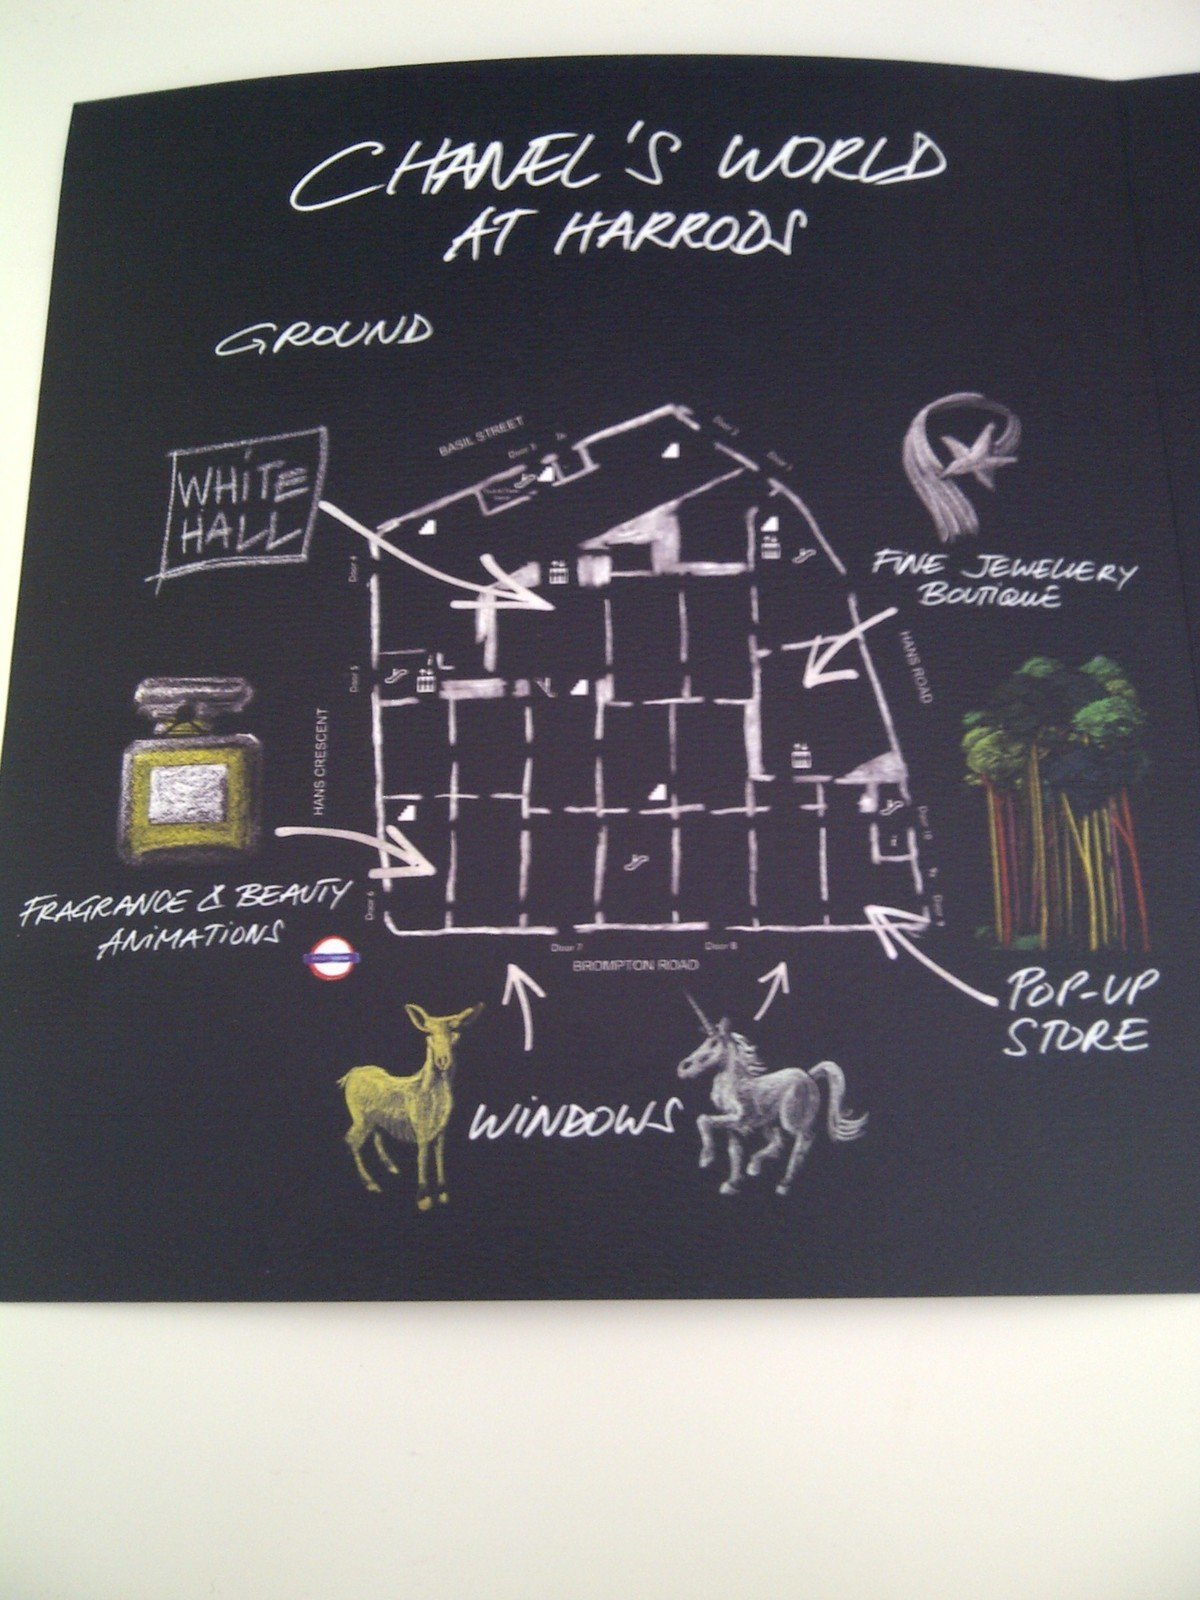 CHANEL'S WORLD
AT HARRODS
GROUND
BASIL STREET
Door 3
Door 2
Door 1
WHiTE
HALL
Door 4
FINE JEWELLERY
BOUTIQUE
Door 5
HANS ROAD
HANS CRESCENT
Door 10
FRAGRANCE & BEAUTY
ANiMATiONS
Door 6
Door 9
Door 7
Door 8
BROMPTON ROAD
POP-UP
STORE
WiNDOWS